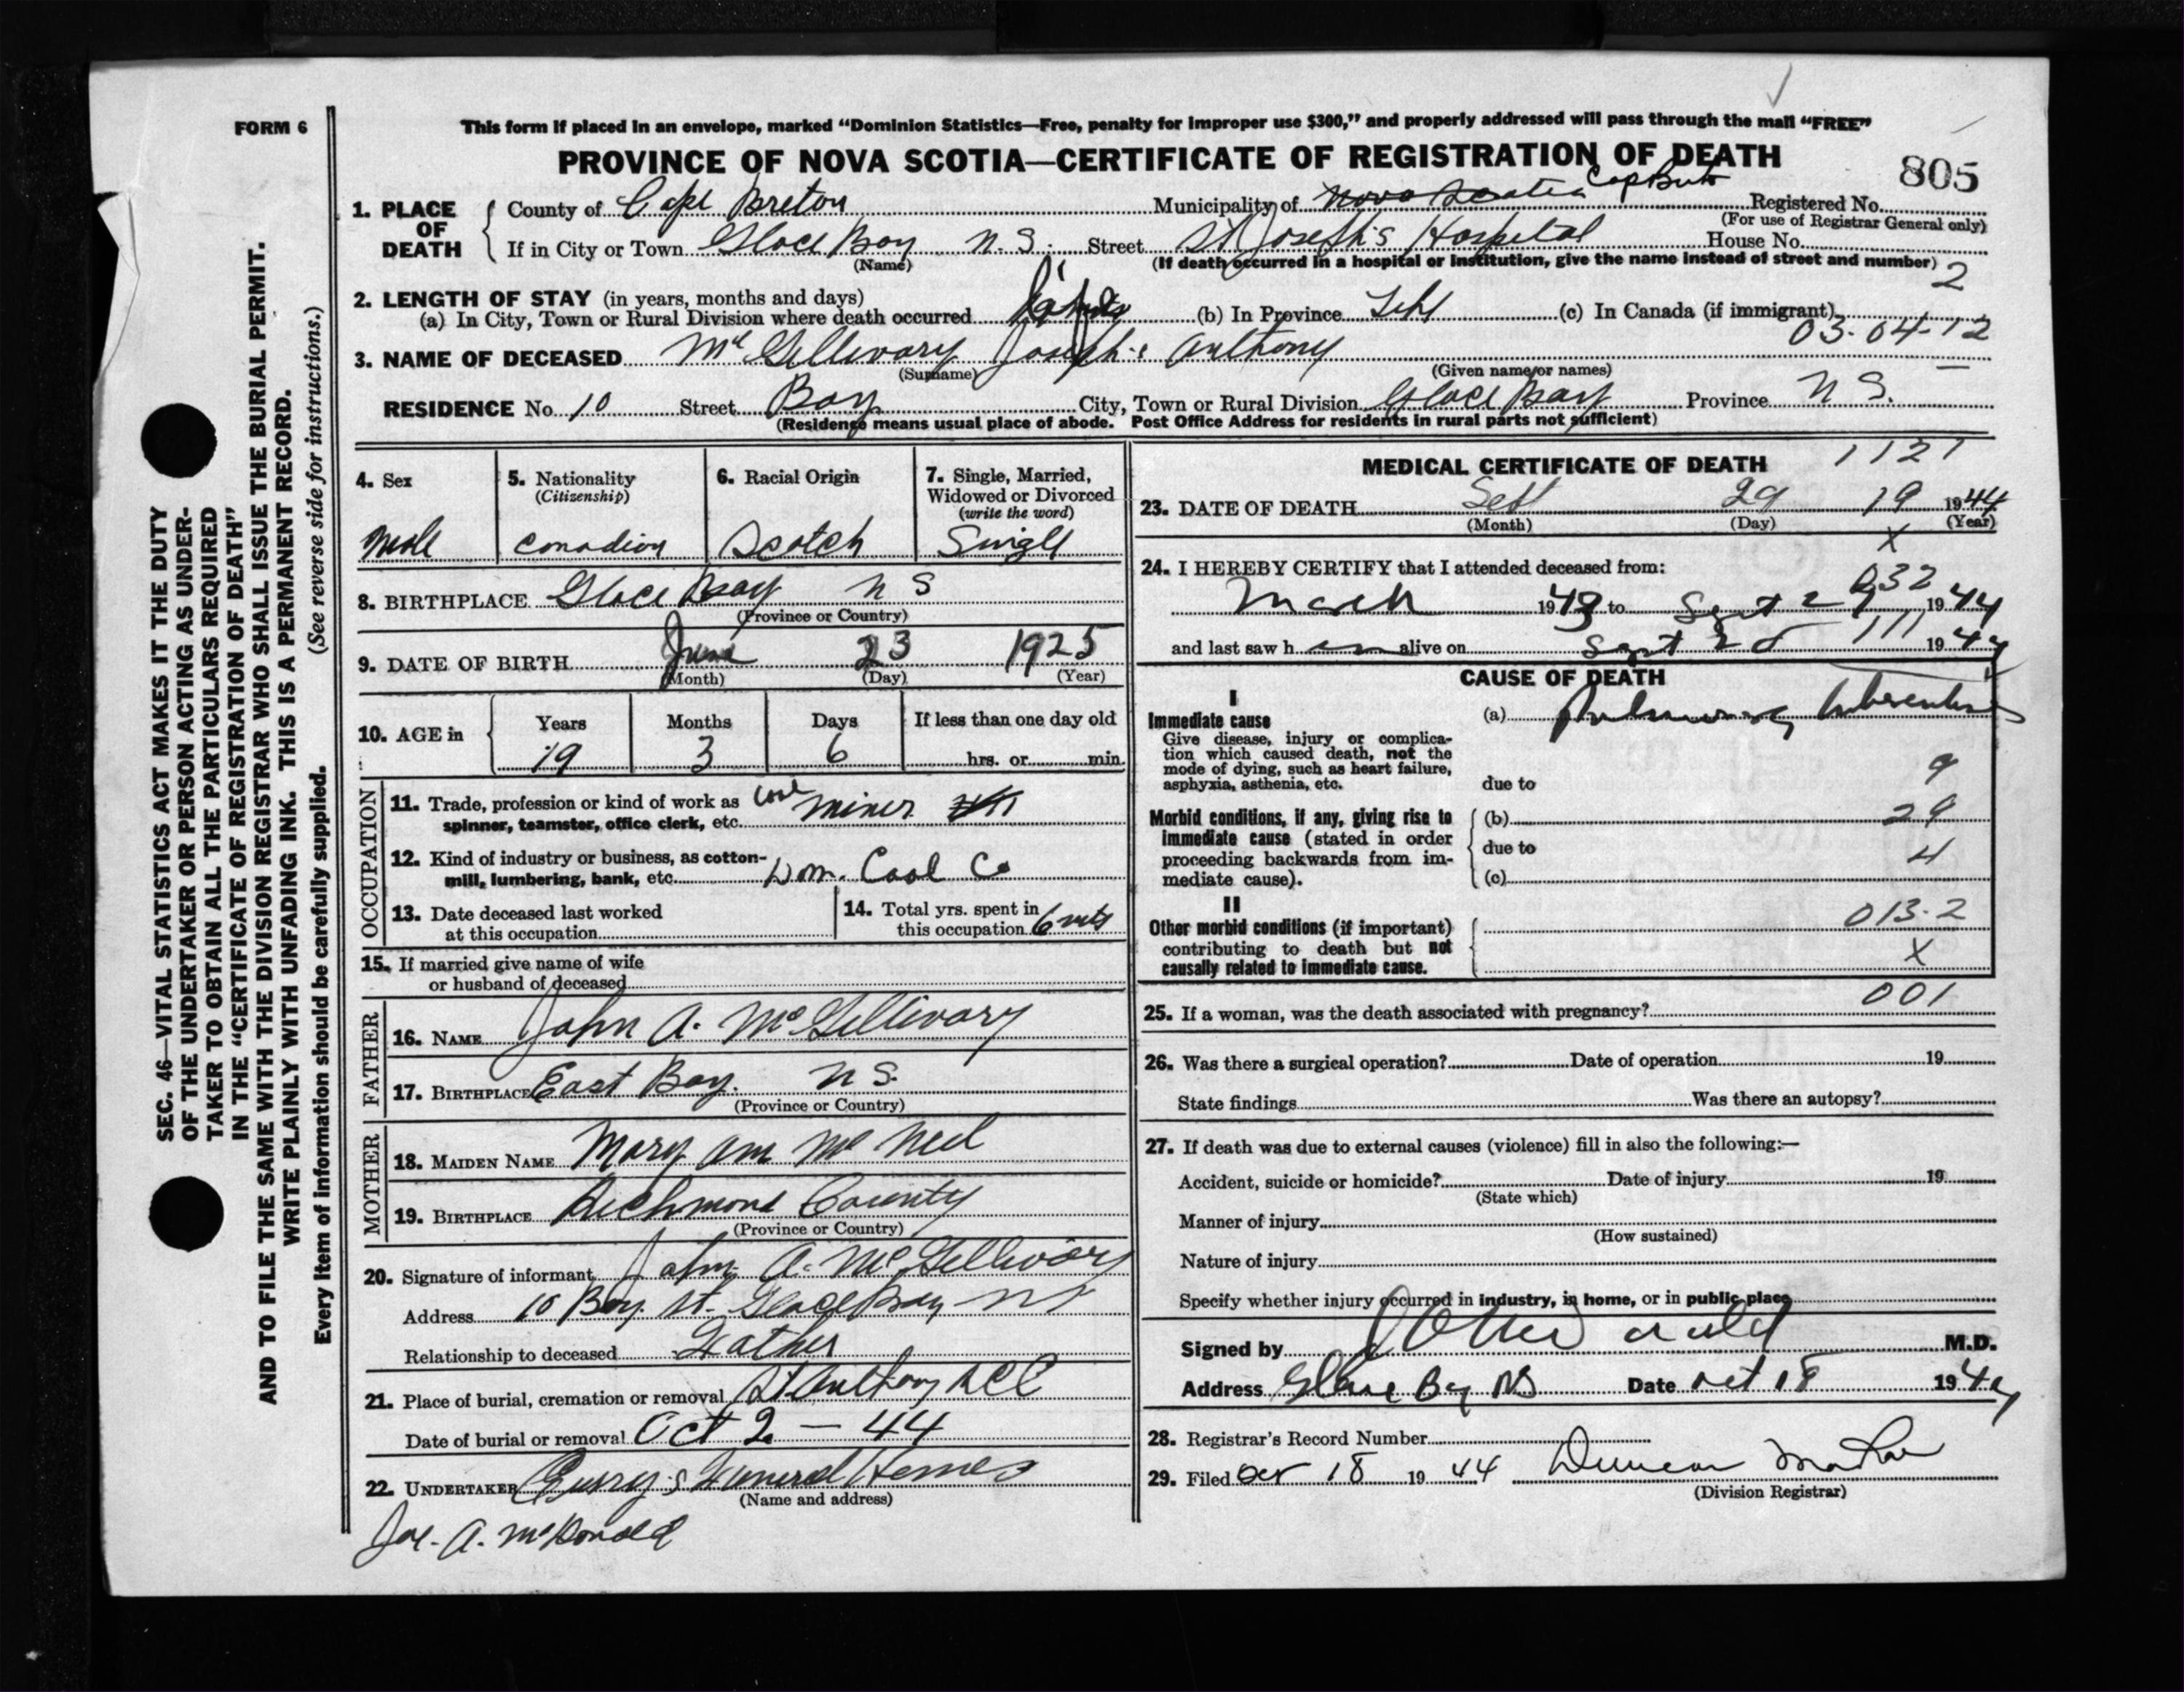 FORM 6
This form if placed in an envelope, marked “Dominion Statistics—Free, penalty for improper use $300,” and properly addressed will pass through the mail “FREE”
PROVINCE OF NOVA SCOTIA—CERTIFICATE OF REGISTRATION OF DEATH
805
1. PLACE OF DEATH
County of Cape Breton Municipality of Nova Scotia Cap Breto Registered No.
(For use of Registrar General only)
If in City or Town Glace Bay N.S. Street St Joseph's Hospital House No.
(Name) (If death occurred in a hospital or institution, give the name instead of street and number)
2
2. LENGTH OF STAY (in years, months and days)
(a) In City, Town or Rural Division where death occurred (b) In Province Life (c) In Canada (if immigrant)
03-04-12
3. NAME OF DECEASED McGillivary Joseph Anthony
(Surname) (Given name or names)
RESIDENCE No. 10 Street Bay City, Town or Rural Division Glace Bay Province N S.
(Residence means usual place of abode. Post Office Address for residents in rural parts not sufficient)
4. Sex
Male
5. Nationality
(Citizenship)
Canadian
6. Racial Origin
Scotch
7. Single, Married, Widowed or Divorced
(write the word)
Single
8. BIRTHPLACE Glace Bay N S
(Province or Country)
9. DATE OF BIRTH June 23 1925
(Month) (Day) (Year)
10. AGE in Years Months Days If less than one day old
19 3 6 hrs. or min.
OCCUPATION
11. Trade, profession or kind of work as spinner, teamster, office clerk, etc. Coal miner
12. Kind of industry or business, as cotton-mill, lumbering, bank, etc. Dom. Coal Co
13. Date deceased last worked at this occupation
14. Total yrs. spent in this occupation 6 mts
15. If married give name of wife or husband of deceased
FATHER
16. NAME John A. McGillivary
17. BIRTHPLACE East Bay. N S.
(Province or Country)
MOTHER
18. MAIDEN NAME Mary Ann McNeil
19. BIRTHPLACE Richmond County
(Province or Country)
20. Signature of informant John A. McGillivary
Address 10 Bay St. Glace Bay NS
Relationship to deceased Father
21. Place of burial, cremation or removal St Anthony
Date of burial or removal Oct 2 — 44
22. UNDERTAKER Curry's Funeral Homes
(Name and address)
A. McDonald
MEDICAL CERTIFICATE OF DEATH 1121
23. DATE OF DEATH Sept 29 19 1944
(Month) (Day) (Year)
X
24. I HEREBY CERTIFY that I attended deceased from:
032
March 1943 to Sept 29 1944
and last saw h im alive on Sept 28 111 1944
CAUSE OF DEATH
I
Immediate cause
Give disease, injury or complication which caused death, not the mode of dying, such as heart failure, asphyxia, asthenia, etc.
(a) Pulmonary tuberculosis
9
due to
Morbid conditions, if any, giving rise to immediate cause (stated in order proceeding backwards from immediate cause).
(b) 29
due to 4
(c)
II
Other morbid conditions (if important) contributing to death but not causally related to immediate cause.
013.2
X
001
25. If a woman, was the death associated with pregnancy?
26. Was there a surgical operation? Date of operation 19
State findings Was there an autopsy?
27. If death was due to external causes (violence) fill in also the following:—
Accident, suicide or homicide? Date of injury 19
(State which)
Manner of injury
(How sustained)
Nature of injury
Specify whether injury occurred in industry, in home, or in public place
Signed by M.D.
Address Glace Bay NS Date Oct 18 1944
28. Registrar's Record Number
29. Filed Oct 18 19 44 Duncan MacRae
(Division Registrar)
SEC. 46—VITAL STATISTICS ACT MAKES IT THE DUTY
OF THE UNDERTAKER OR PERSON ACTING AS UNDER-
TAKER TO OBTAIN ALL THE PARTICULARS REQUIRED
IN THE “CERTIFICATE OF REGISTRATION OF DEATH”
AND TO FILE THE SAME WITH THE DIVISION REGISTRAR WHO SHALL ISSUE THE BURIAL PERMIT.
WRITE PLAINLY WITH UNFADING INK. THIS IS A PERMANENT RECORD.
Every item of information should be carefully supplied. (See reverse side for instructions.)